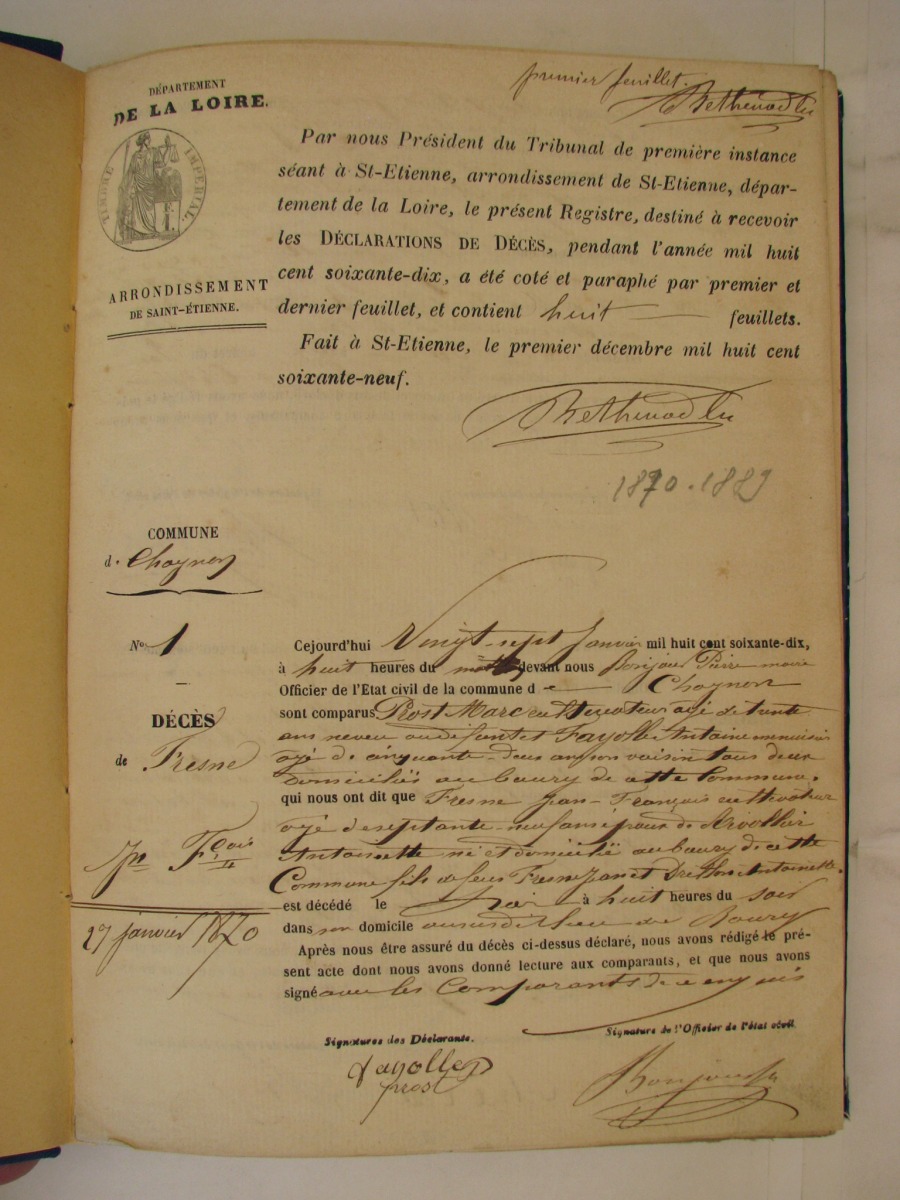 premier feuillet.
Bethenod
DÉPARTEMENT
DE LA LOIRE.
TIMBRE IMPÉRIAL.
Par nous Président du Tribunal de première instance
séant à St-Etienne, arrondissement de St-Etienne, dépar-
tement de la Loire, le présent Registre, destiné à recevoir
les DÉCLARATIONS DE DÉCÈS, pendant l'année mil huit
cent soixante-dix, a été coté et paraphé par premier et
dernier feuillet, et contient huit feuillets.
Fait à St-Etienne, le premier décembre mil huit cent
soixante-neuf.
ARRONDISSEMENT
DE SAINT-ÉTIENNE.
Bethenod
1870.1889
COMMUNE
d. Chagnon
No 1
DÉCÈS
de Fresne
Jn Fçois
27 janvier 1870
Cejourd'hui Vingt-sept Janvier mil huit cent soixante-dix,
à huit heures du matin devant nous Bonjour Pierre maire
Officier de l'Etat civil de la commune de Chagnon
sont comparus Prost Marc cultivateur agé de trente
ans neveu au défunt et Fayolle Antoine menuisier
agé de cinquante-deux ans son voisin tous deux
domiciliés au bourg de cette Commune.
qui nous ont dit que Fresne Jean-François cultivateur
agé de septante-neuf ans époux de
Antoinette né et domicilié au bourg de cette
Commune fils de feus Fresne Jean et Antoinette.
est décédé le hier à huit heures du soir
dans son domicile au susdit lieu de Bourg
Après nous être assuré du décès ci-dessus déclaré, nous avons rédigé le pré-
sent acte dont nous avons donné lecture aux comparants, et que nous avons
signé avec les Comparants de ce enquis
Signatures des Déclarants.
Signature de l'Officier de l'état civil.
Fayolle
prost
Bonjour